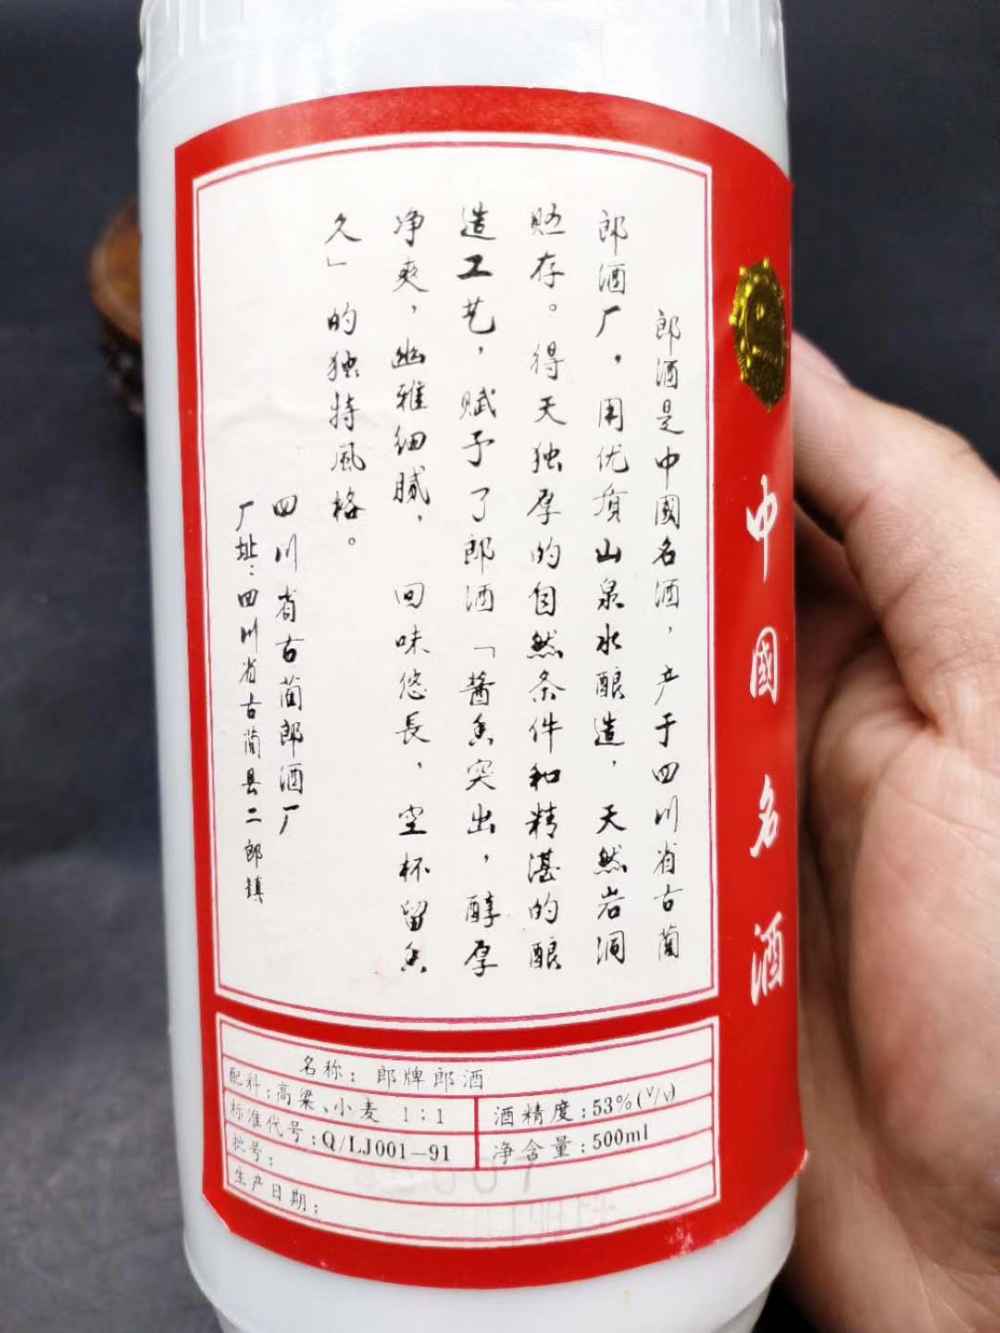 郎酒是中國名酒，产于四川省古蔺
郎酒厂，用优质山泉水酿造，天然岩洞
贮存。得天独厚的自然条件和精湛的酿
造工艺，赋予了郎酒「酱香突出，醇厚
净爽，幽雅细腻，回味悠長，空杯留香
久」的独特風格。
四川省古蔺郎酒厂
厂址：四川省古蔺县二郎镇
中國名酒
名称：郎牌郎酒
配料：高粱、小麦 1：1
酒精度：53%(V/V)
标准代号：Q/LJ001—91
净含量：500ml
批号：
生产日期：